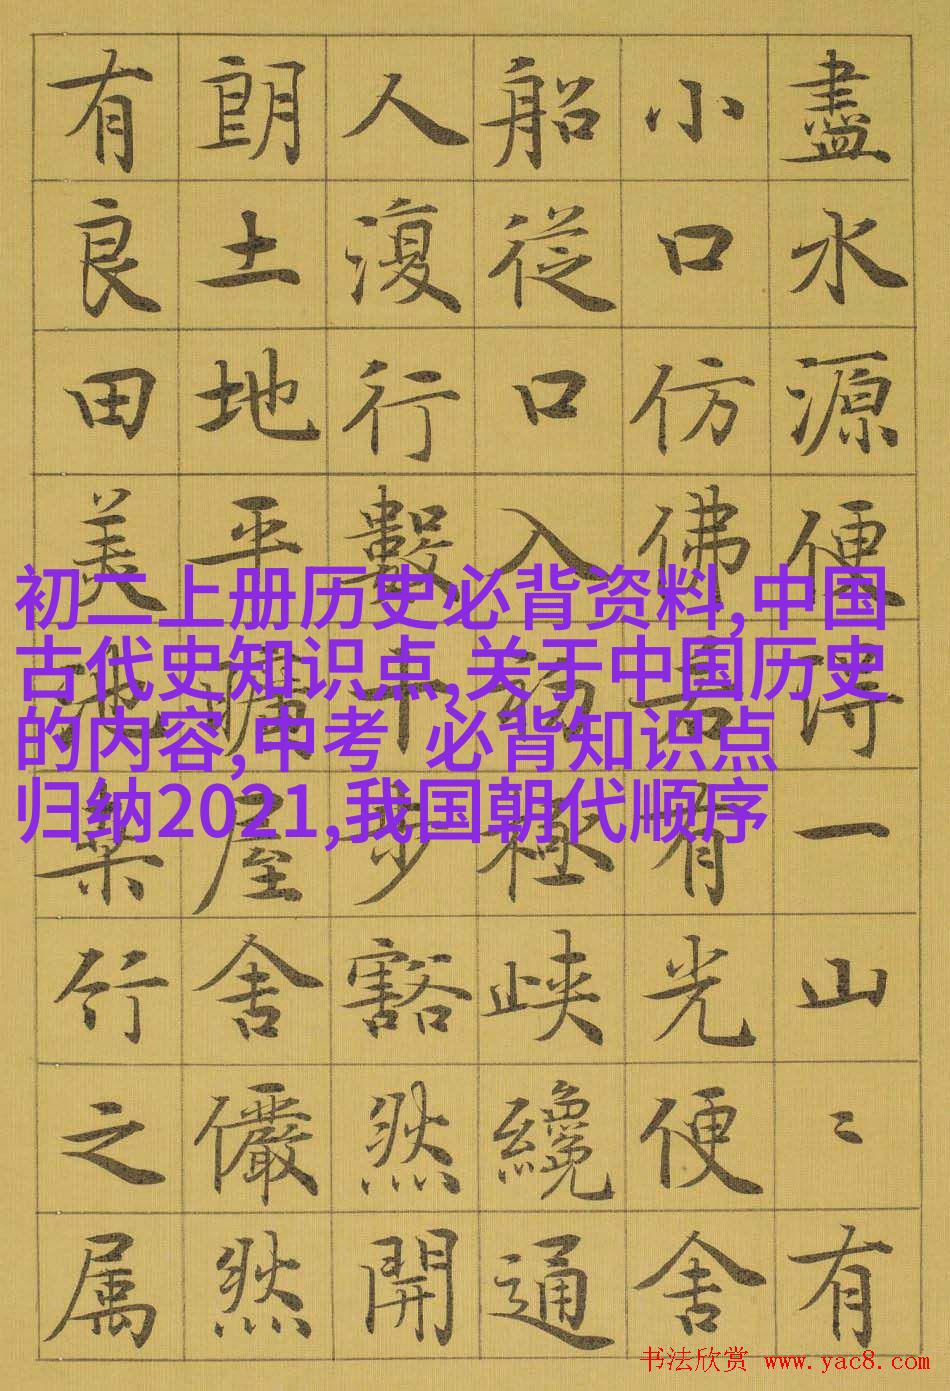 盡水源便得一山〻有
小口仿佛若有光便舍
船從口入初極峽纔通
人復行數十步豁然開
朗土地平曠屋舍儼然
有良田美池桑竹之属
初二上册历史必背资料,中国
古代史知识点,关于中国历史
的内容,中考 必背知识点
归纳2021,我国朝代顺序
书法欣赏 www.yac8.com